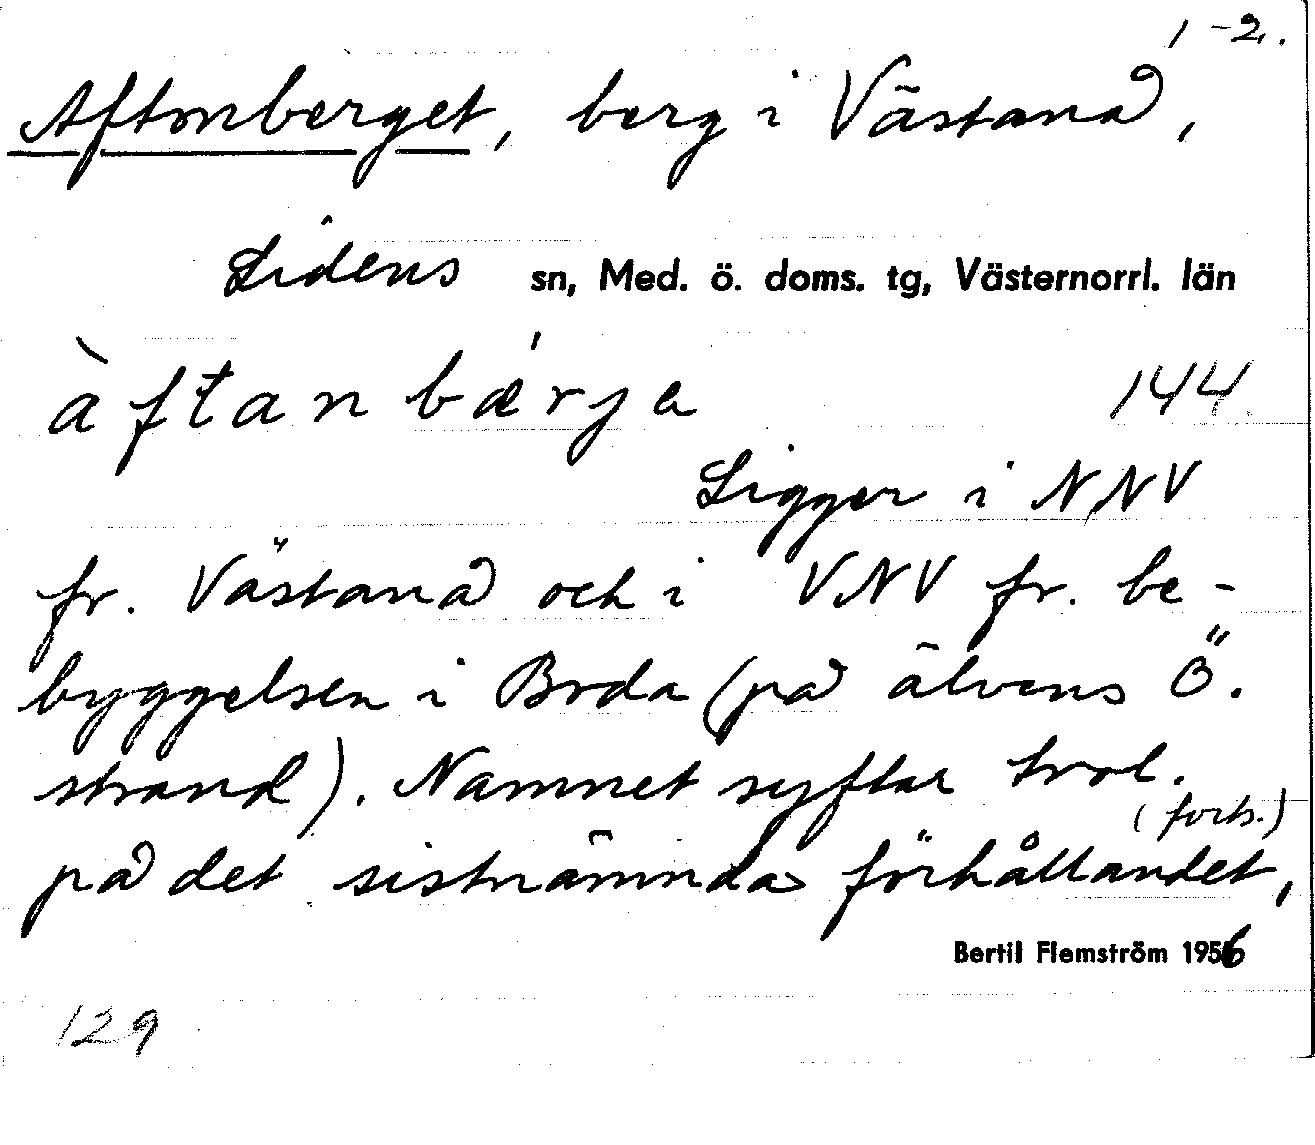 1-2.
Aftonberget, berg i Västanå,
Lidens sn, Med. ö. doms. tg, Västernorrl. län
àftanbǽrje
144
Ligger i NNV
fr. Västanå och i VNV fr. be-
byggelsen i Boda (på älvens ö.
strand). Namnet syftar trol.
på det sistnämnda förhållandet,
(forts.)
Bertil Flemström 1956
129